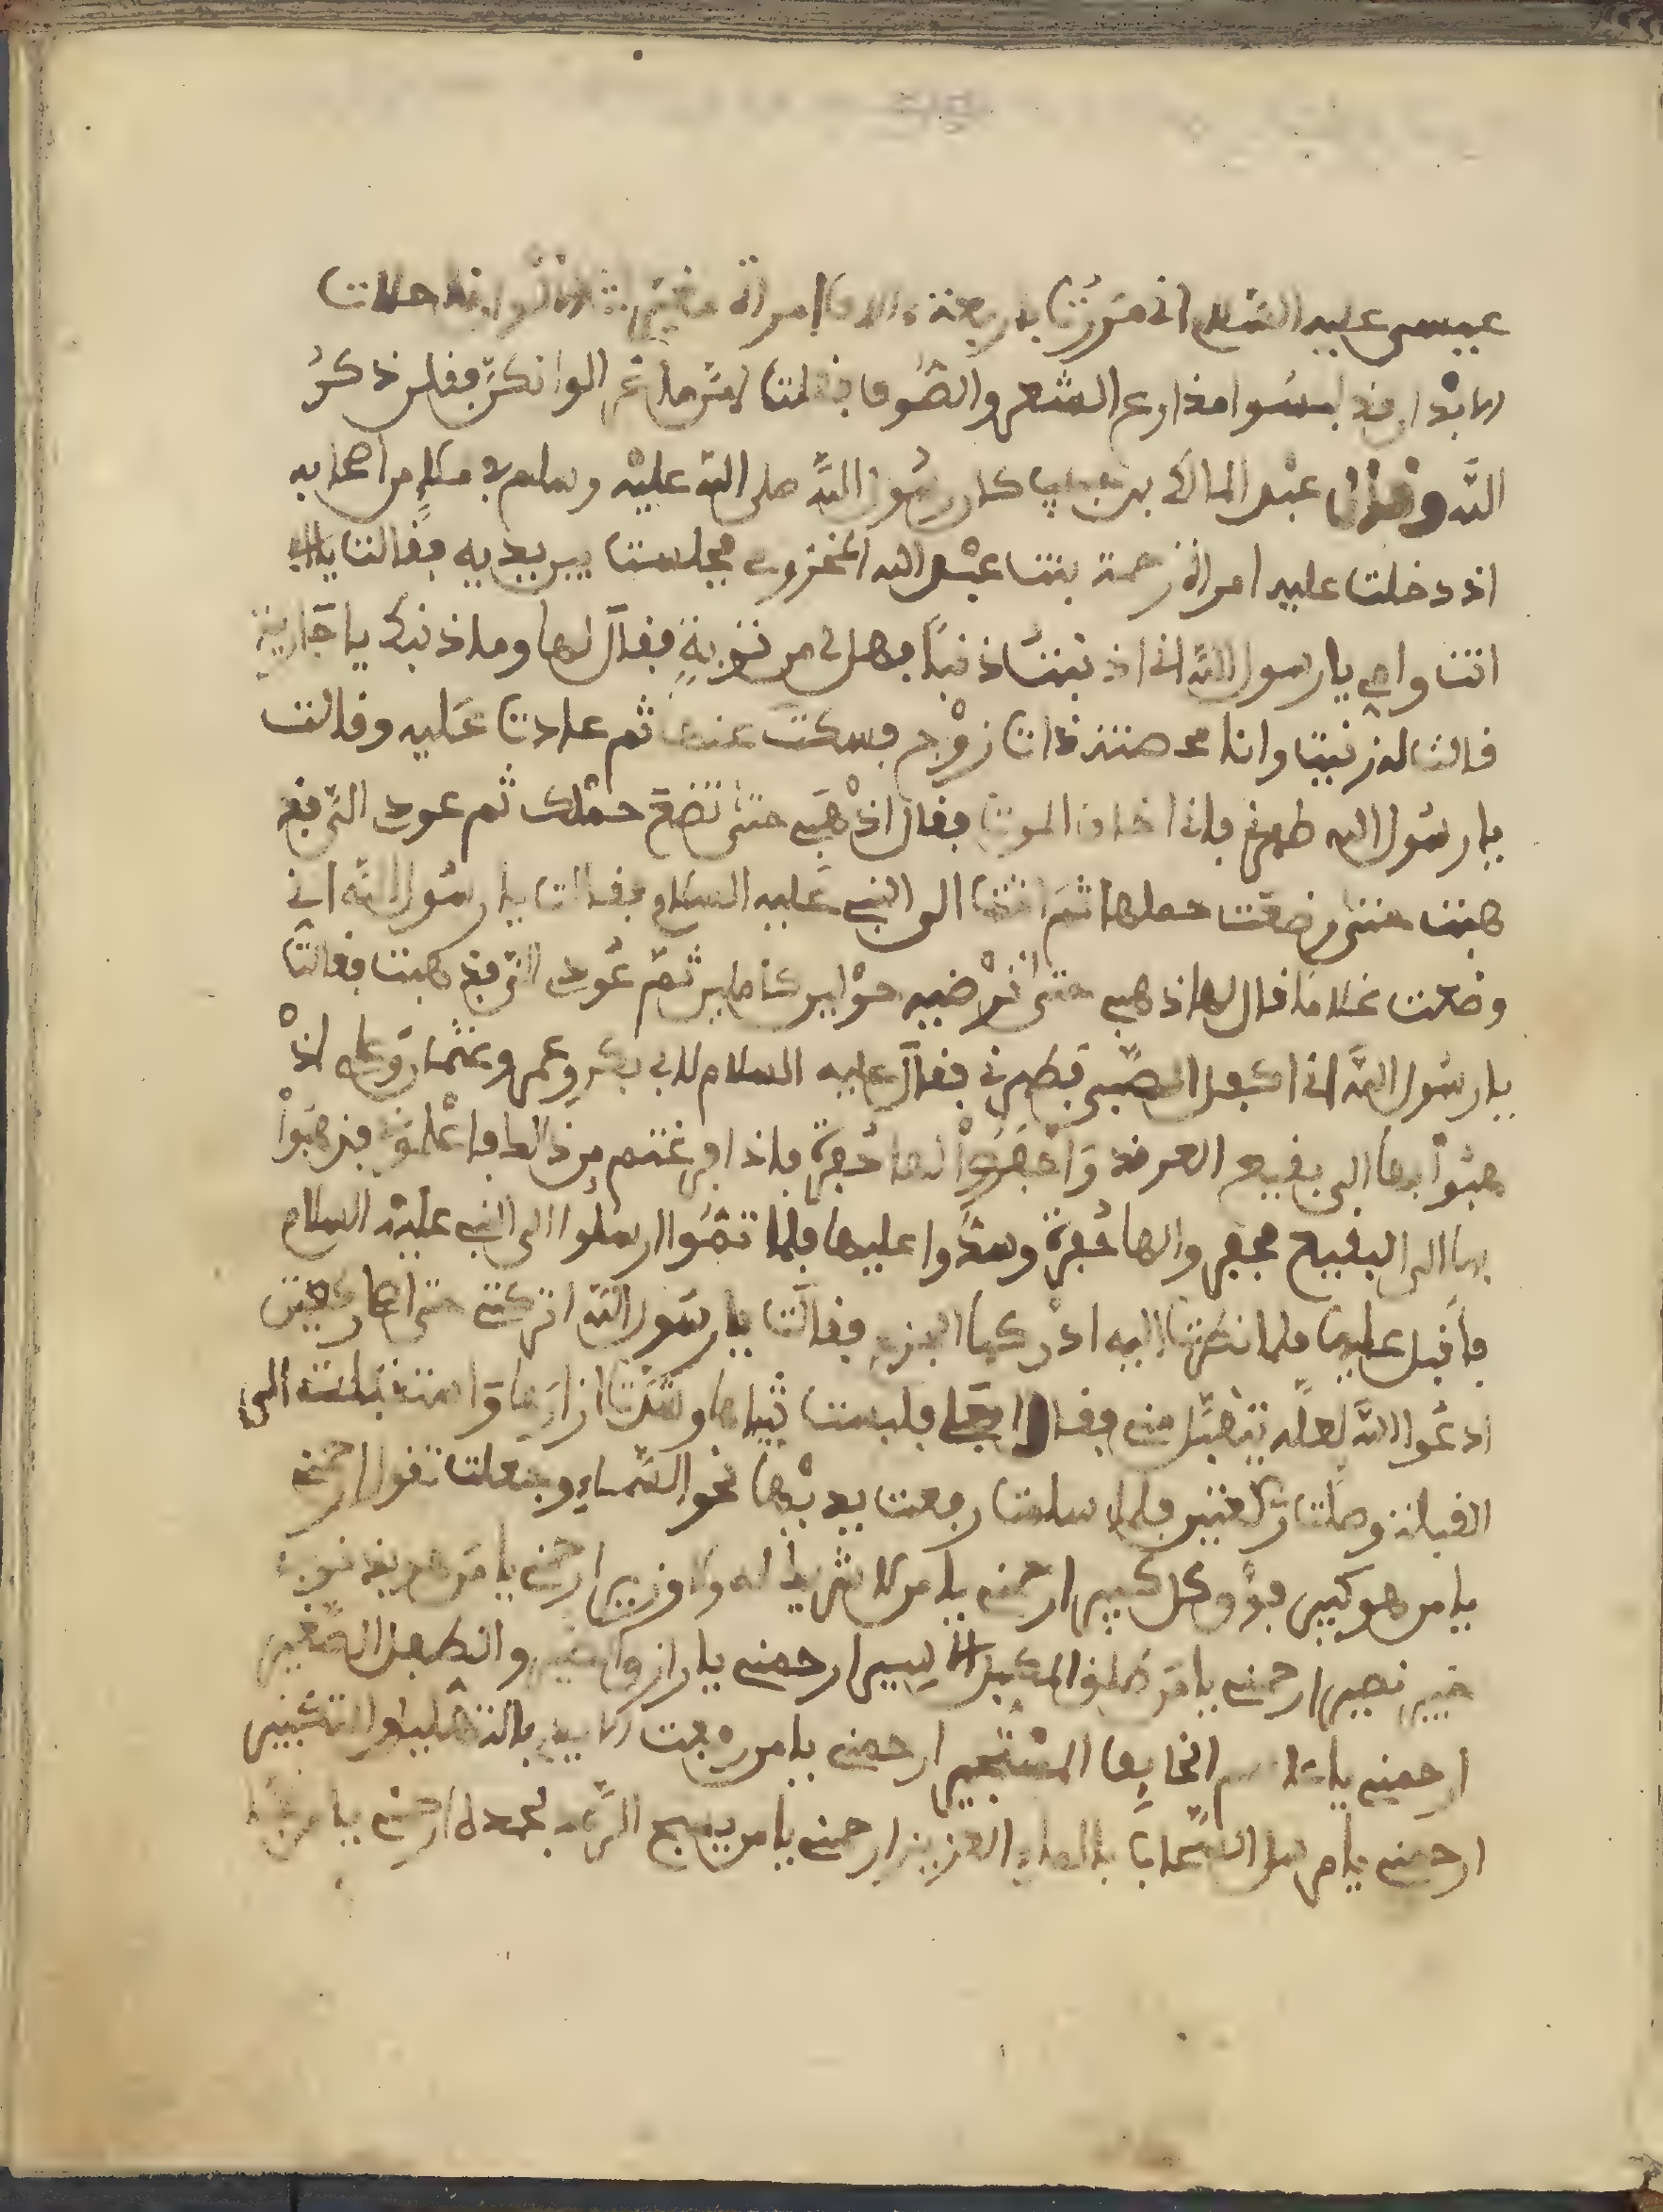 عيسى عليه السلام انى مررت باربعة ءالاف امراة حلات
الابدان قد لبسوا مذارع الشعر والصوف فقلت
الله وقال عبد المالك بن حبيب كان رسول الله صلى الله عليه وسلم في ملإ من اصحابه
اذ دخلت عليه امراة رحمة بنت عبد الله المخزومى فجلست بين يديه فقالت بابى
انت وامى يا رسول الله انى اذنبت ذنبا فهل لى من توبة فقال لها وما ذنبك يا جارية
قالت له زنيت وانا محصنة ذات زوج فسكت عنها ثم عادت عليه وقالت
يا رسول الله طهرنى فانى اخاف الموت فقال اذهبى حتى تضع حملك ثم عودى الىّ فذ
هبت حتى وضعت حملها ثم اتت الى النبى عليه السلام فقالت يا رسول الله انى
وضعت غلاما قال لها اذهبى حتى ترضيه حولين كاملين ثم عودى الىّ فذهبت فقالت
يا رسول الله انى اكبل الصبى فطهرنى فقال عليه السلام لابى بكر وعمر وعثمان وعلى اذ
هبوا بها الى بقيع الغرقد واحفروا لها حفرة فاذا فرغتم من ذالك فاعلمونى فذهبوا
بها الى البقيع فحفروا لها حفرة وشدوا عليها فلما تموا ارسلوا الى النبى عليه السلام
فاقبل عليها فلما نظرت اليه ادركها الجزع فقالت يا رسول الله اتركنى حتى اصلى ركعتين
ادعوا الله لعله يتقبل منى فقال افعلى فلبست ثيابها وشدت ازارها واستقبلت الى
القبلة وصلت ركعتين فلما سلمت رفعت يديها نحو السماء وجعلت تقول ارحمنى
يا من هو كبير فوق كل كبير ارحمنى يا من لا شريك له ولا وزير ارحمنى يا من هو بذنوبى
خبير بصير ارحمنى يا من المكبل الاسير ارحمنى يا رازق والطفل الصغير
ارحمنى يا الخايف المستجير ارحمنى يا من رفعت الايدى بالتهليل والتكبير
ارحمنى يا مرسل السحاب بالماء الغزير ارحمنى يا من يسبح الرعد بحمده ارحمنى يا من